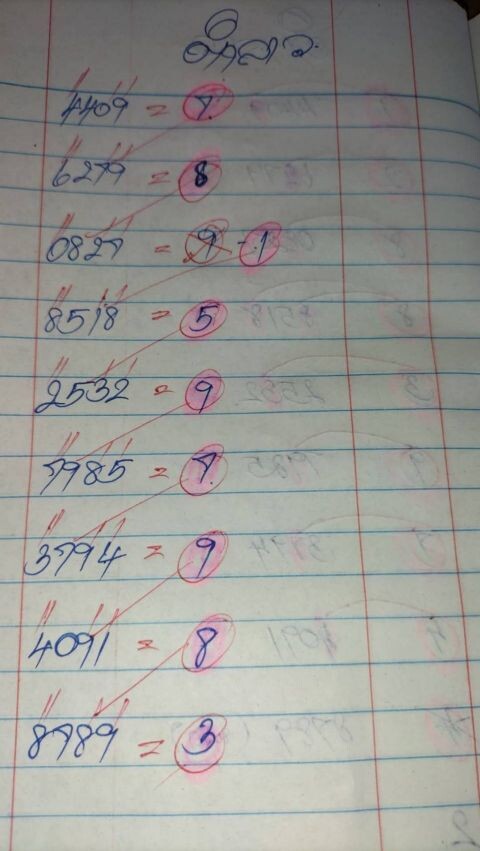 4409 = 7
6279 = 8
0827 = 9 - 1
8518 = 5
2532 = 9
7985 = 7
3794 = 9
4091 = 8
8789 = 3